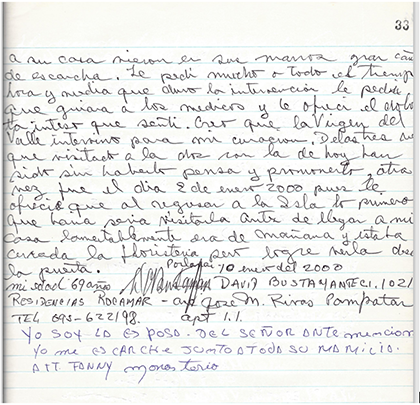 33
a su casa vieron en sus manos gran can
de escarcha. Le pedí mucho a todo el tiempo
hora y media que duro la intervención le pedía
que guiara a los medicos y le ofrecí el dolor
tan intiso que sentí. Creo que la Virgen del
Valle intervino para mi curacion. De las tres
que visitado a la doz con la de hoy han
sido sin haberlo pensa y promonerlo, otra
vez fue el dia 2 de enero 2000 pues le
ofrecia que al regresar a la Isla lo primero
que haria seria visitarla antes de llegar a mi
casa lamentablemente era de mañana y estaba
cerrada la floristeria pero logre verla desde
la puerta. Porlapaí 10 enero del 2000
mi edad 69 años DAVID BUSTAMANTE C.I. 1021
RESIDENCIAS ROCAMAR - ap Jose M. Rivas Pampatar
TEL 095-622198. apt 1.1.
YO SOY LA ESPOSA. DEL SEÑOR ANTE mencion
YO ME ESCARCHE JUNTO A TODA SU FAMILIA.
ATT FANNY monasterio